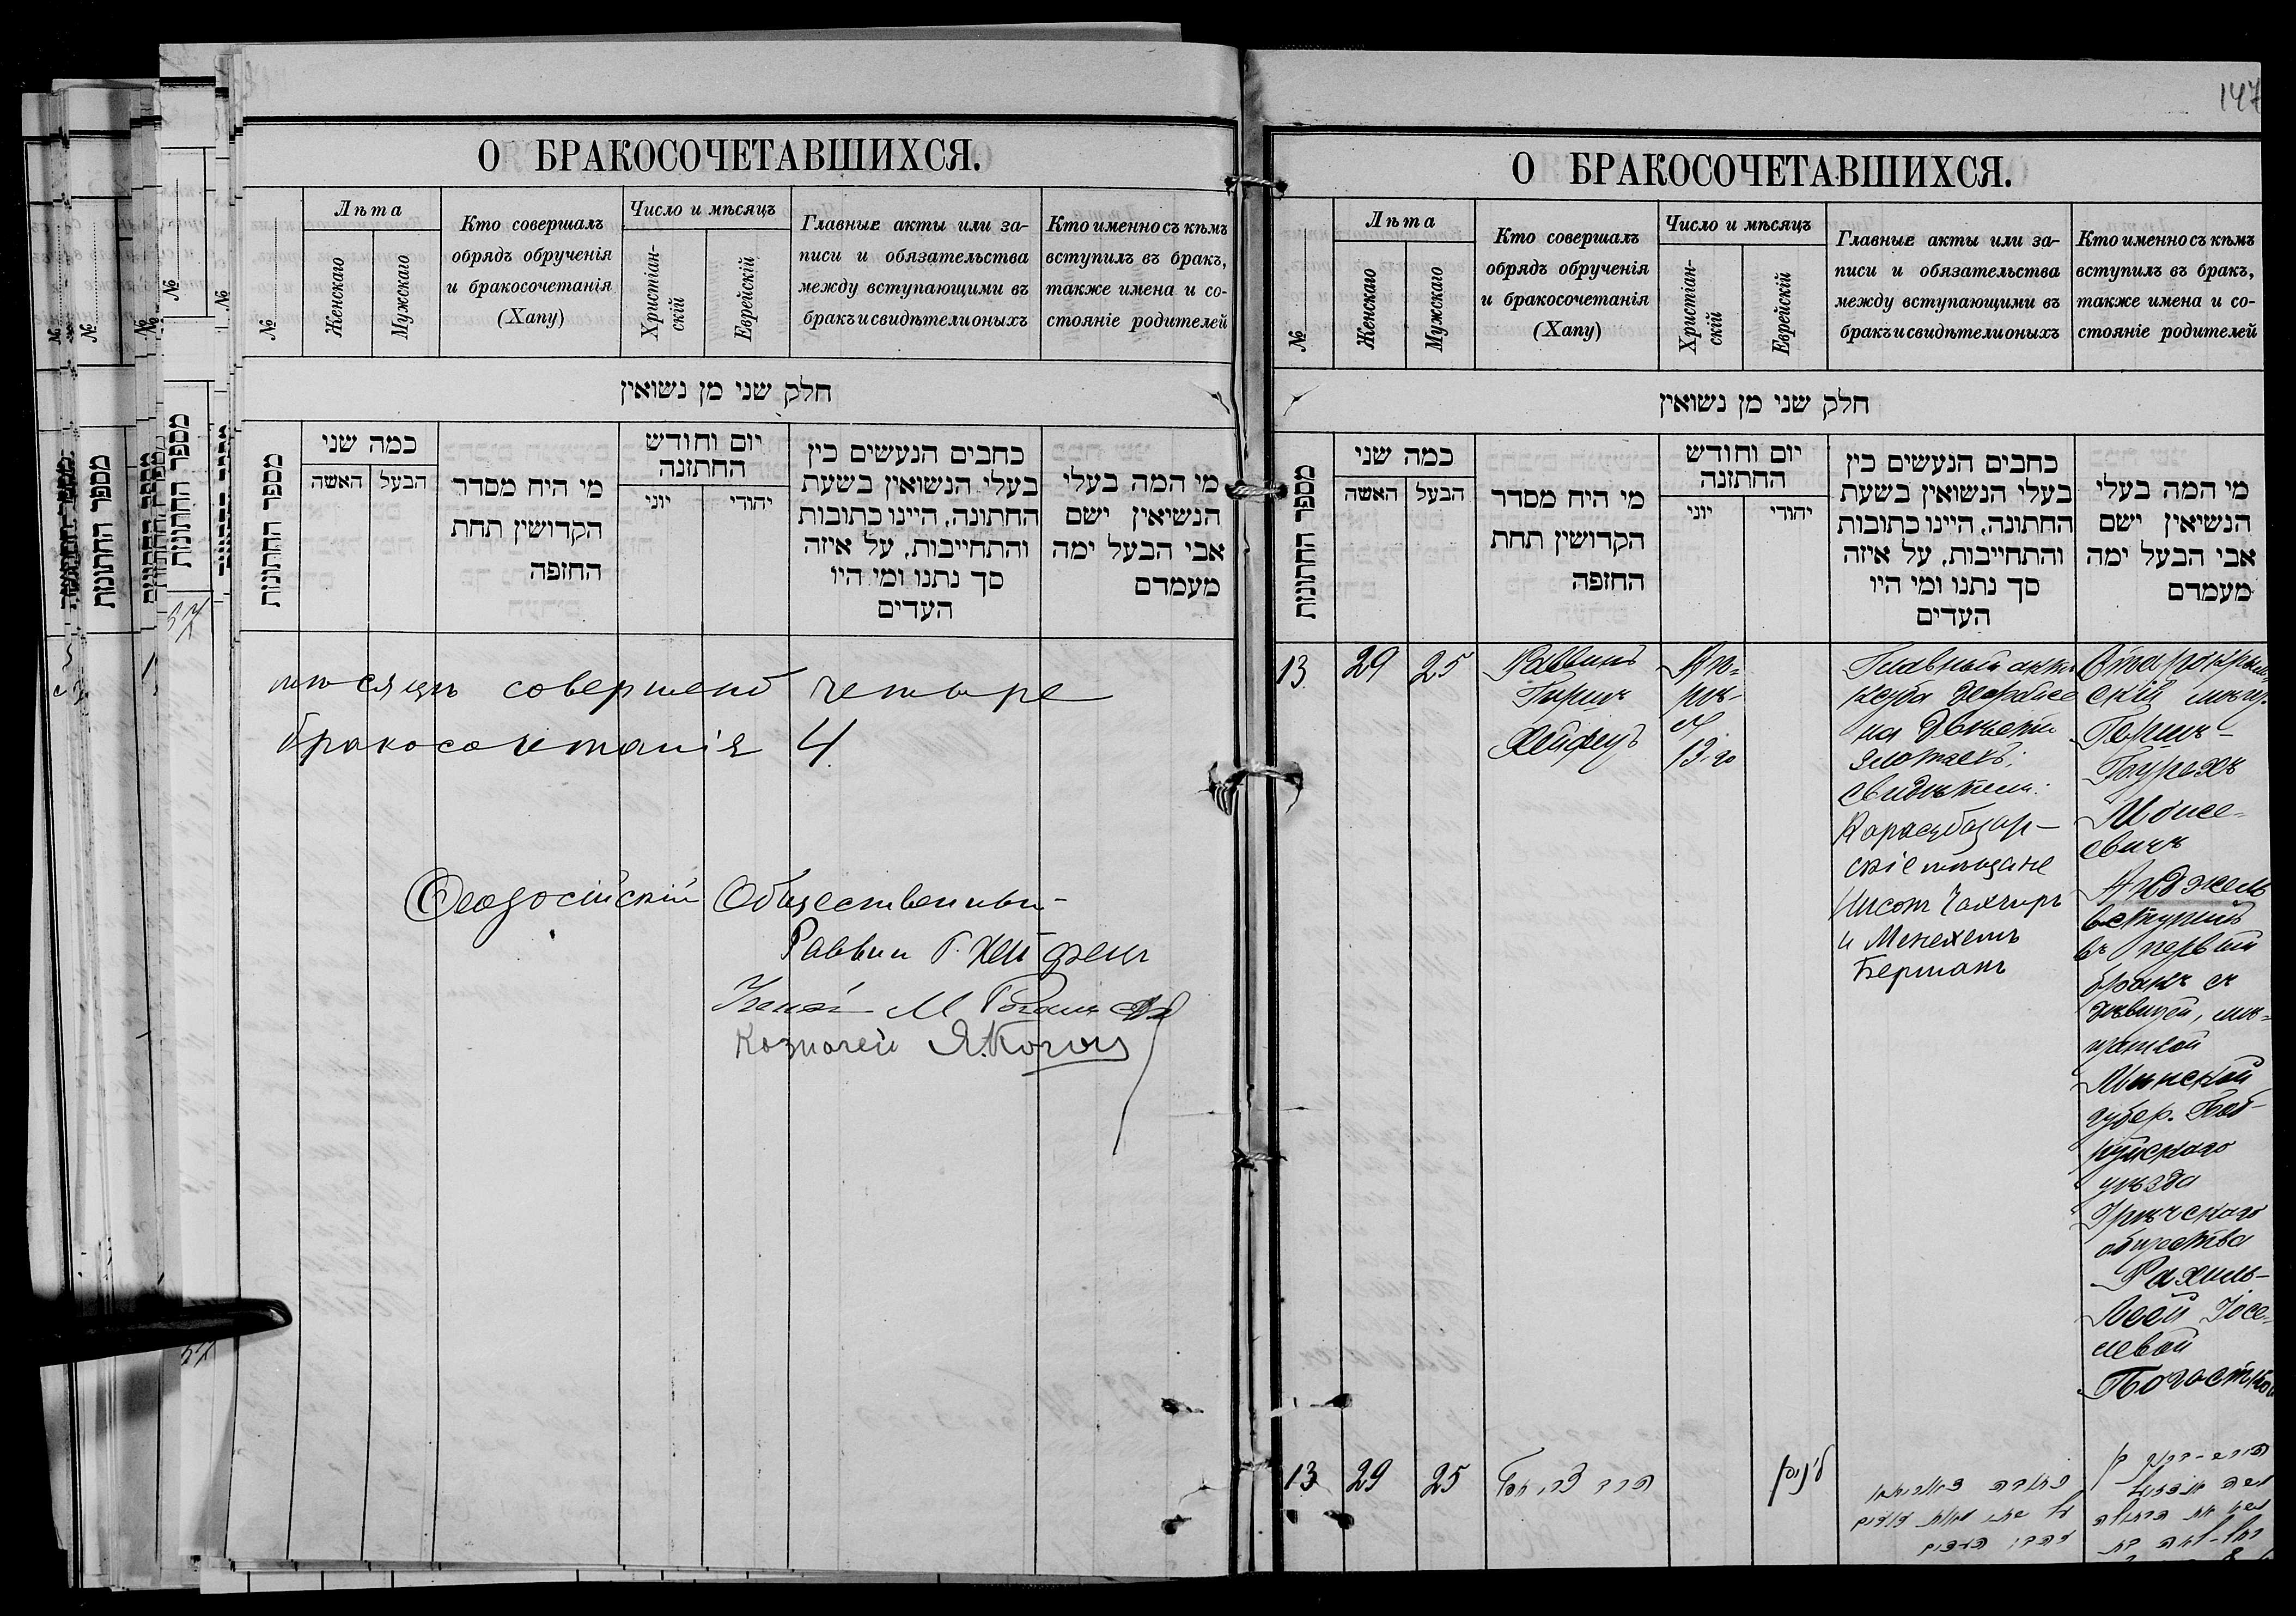 О БРАКОСОЧЕТАВШИХСЯ.
№
Лѣта
Женскаго
Мужскаго
Кто совершалъ
обрядъ обрученія
и бракосочетанія
(Хапу)
Число и мѣсяцъ
Христіан-
скій
Еврейскій
Главные акты или за-
писи и обязательства
между вступающими въ
бракъ и свидѣтели оныхъ
Кто именно съ кѣмъ
вступилъ въ бракъ,
также имена и со-
стояніе родителей
חלק שני מן נשואין
מספר החתונות
כמה שני
האשה
הבעל
מי היח מסדר
הקדושין תחת
החופה
יום וחודש
החתונה
יוני
יהודי
כתבים הנעשים בין
בעלי הנשואין בשעת
החתונה, היינו כתובות
והתחייבות, על איזה
סך נתנו ומי היו
העדים
מי המה בעלי
הנשיאין ישם
אבי הבעל ימה
מעמדם
мѣсяцъ совершено четыре
бракосочетанія 4
Феодосійскій Общественный
Раввин Г. Хейфецъ
М
Казначей Я. Коган
147
О БРАКОСОЧЕТАВШИХСЯ.
№
Лѣта
Женскаго
Мужскаго
Кто совершалъ
обрядъ обрученія
и бракосочетанія
(Хапу)
Число и мѣсяцъ
Христіан-
скій
Еврейскій
Главные акты или за-
писи и обязательства
между вступающими въ
бракъ и свидѣтели оныхъ
Кто именно съ кѣмъ
вступилъ въ бракъ,
также имена и со-
стояніе родителей
חלק שני מן נשואין
מספר החתונות
כמה שני
האשה
הבעל
מי היח מסדר
הקדושין תחת
החופה
יום וחודש
החתונה
יוני
יהודי
כתבים הנעשים בין
בעלי הנשואין בשעת
החתונה, היינו כתובות
והתחייבות, על איזה
סך נתנו ומי היו
העדים
מי המה בעלי
הנשיאין ישם
אבי הבעל ימה
מעמדם
13
29
25
Раввинъ
Гиршъ
Хейфецъ
Ап-
рѣ-
ля
13-го
Главный актъ
на двѣсти
злотыхъ;
свидѣтели:
Карасубазар-
скіе мѣщане
Нисонъ
и Менахемъ
Берманъ
Старокрым-
скій мѣщ.
Герцъ-
Бурахъ
Моисе-
евичъ
вступилъ
въ первый
бракъ съ
дѣвицей, мѣ-
щанкой
Минской
губер. Боб-
руйскаго
уѣзда
общества
Рахиль-
Леей Іосе-
левой
13
29
25